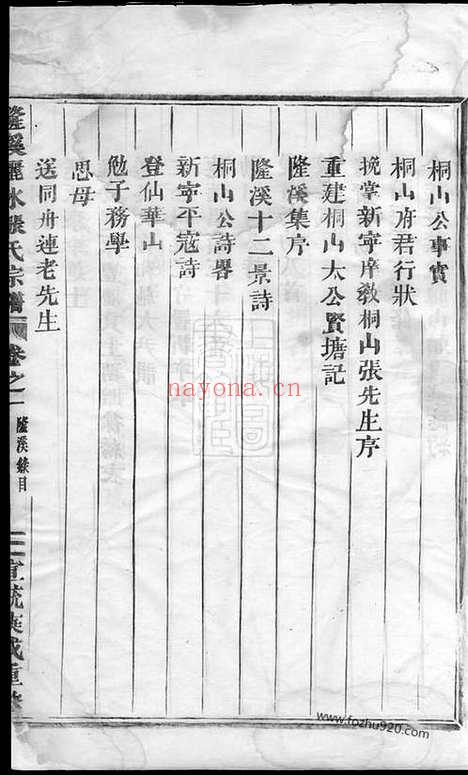 桐山公事實
桐山府君行狀
挽掌新寧庠教桐山張先生序
重建桐山太公賢塘記
隆溪集序
隆溪十二景詩
桐山公詩畧
新寧平寇詩
登仙華山
勉子務學
思母
送同舟連老先生
隆溪麗水張氏宗譜
卷之一
隆溪錄目
二
宣統庚戌重
nayona.cn
www.fozhu920.com